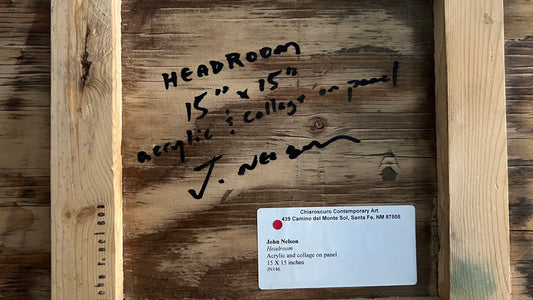 HEADROOM
15" x 15"
acrylic & collage on panel
J. Nelson
Chiaroscuro Contemporary Art
439 Camino del Monte Sol, Santa Fe, NM 87505
John Nelson
Headroom
Acrylic and collage on panel
15 X 15 inches
JN146
john f. nelson